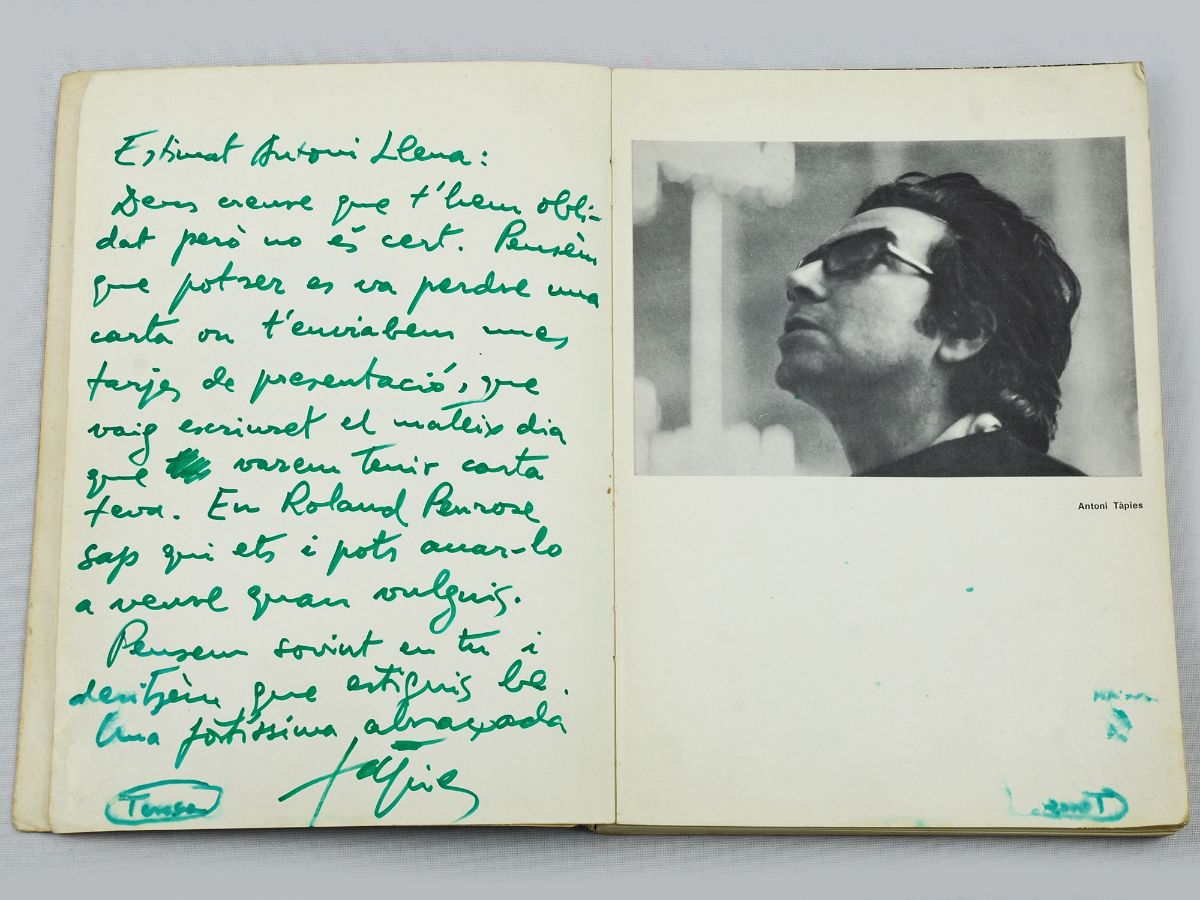 Estimat Antoni Llena:
Deus creure que t'hem obli-
dat però no és cert. Pensèm
que potser es va perdre una
carta on t'enviabem unes
tarjes de presentació, que
vaig escriuret el mateix dia
que varem tenir carta
teva. En Roland Penrose
sap qui ets i pots anar-lo
a veure quan vulguis.
Pensem sovint en tu i
desitjèm que estiguis be.
Una fòrtissima abraçada
Tàpies
Teresa
Antoni Tàpies